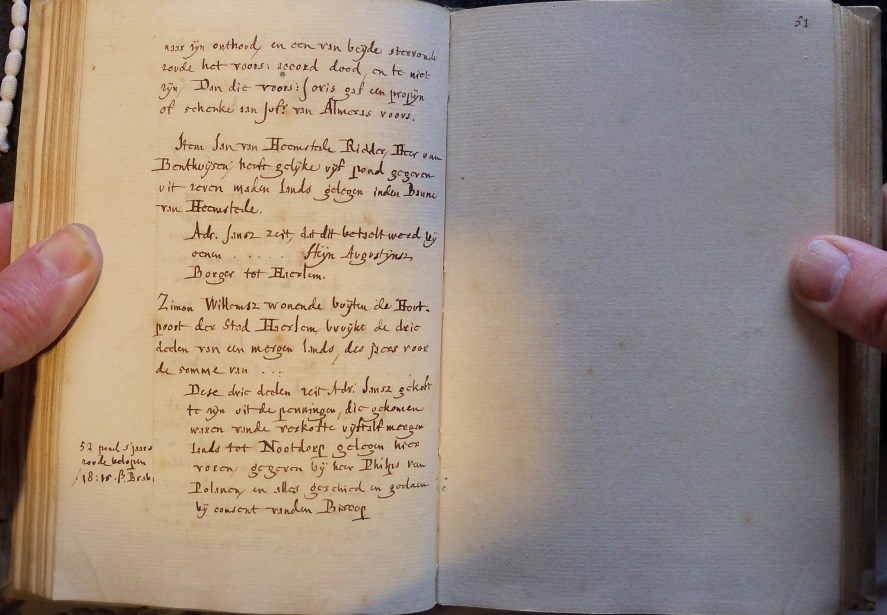 naar zijn onthoud, en een van beyde stervende
zoude het voors: accord dood, en te niet
zijn, Dan die voors: Joris gaf een propijn
of schenke aan Jofr. van Almeras voors.
Item Jan van Heemstede Ridder, Heer van
Benthuijsen, heeft gelijke vijf pond gegeven
uit zeven maden lands gelegen inden Banne
van Heemstede.
Adr. Jansz zeit, dat dit betaelt werd bij
eenen . . . . . Stijn Augustijnsz
Borger tot Haerlem.
Zimon Willemsz wonende buijten de Hout-
poort der Stad Haerlem bruijkt de drie
delen van een mergen lands, des jaers voor
de somme van . . .
Dese drie deelen zeit Adr. Jansz gekoft
te zijn uit de penningen, die gekomen
waren vande verkofte vijftalf mergen
lands tot Nootdorp gelegen hier
voren, gegeven bij heer Philips van
Polanen, en alles geschied en gedaen
bij consent vanden Biscop
52 pond s'jaars
zoude belopen
51